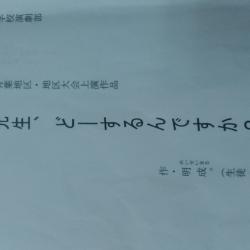 学校演劇部
葉地区・地区大会上演作品
先生、どーするんですか。
作・明成。（生徒